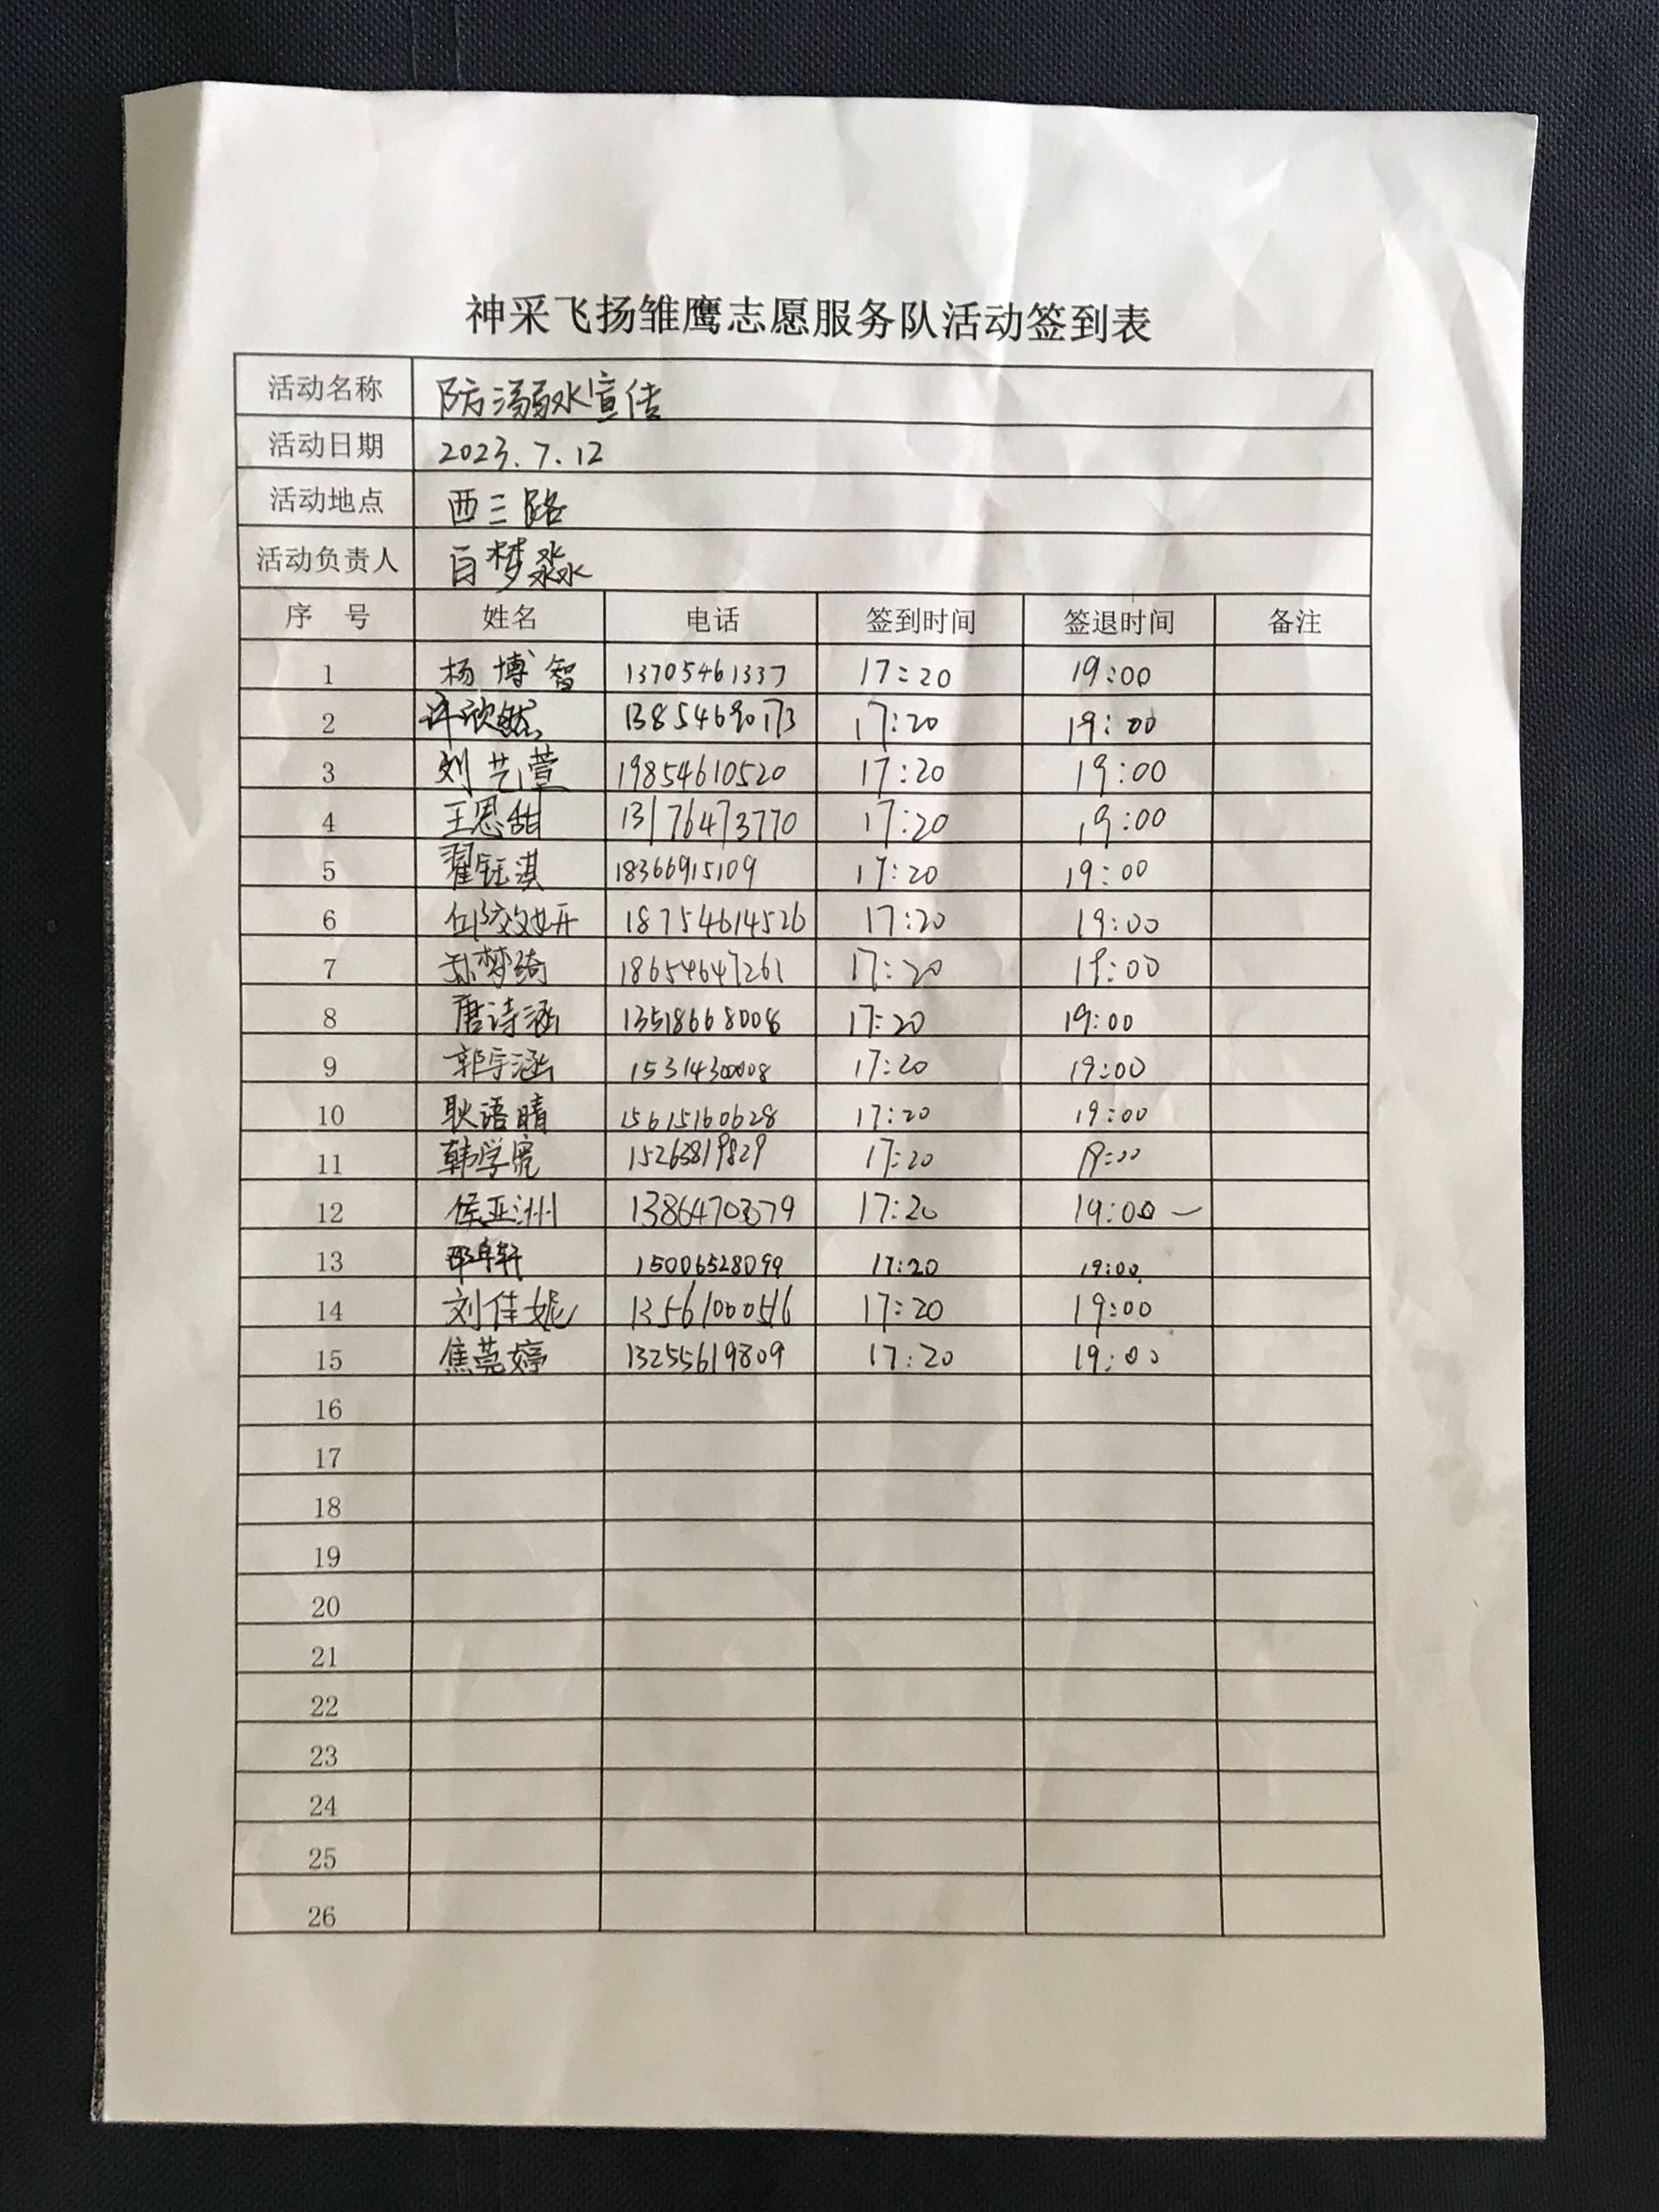 神采飞扬雏鹰志愿服务队活动签到表
活动名称 防溺水宣传
活动日期 2023.7.12
活动地点 西三路
活动负责人 白梦淼
序 号 姓名 电话 签到时间 签退时间 备注
1 杨博智 13705461337 17:20 19:00
2 许欣然 13854690173 17:20 19:00
3 刘艺萱 19854610520 17:20 19:00
4 王恩甜 13176473770 17:20 19:00
5 翟钰淇 18366915109 17:20 19:00
6 18754614526 17:20 19:00
7 孙梦绮 18654647261 17:20 19:00
8 唐诗涵 13518668008 17:20 19:00
9 郭宇涵 15314300008 17:20 19:00
10 耿语晴 15615160628 17:20 19:00
11 韩学宽 15263819829 17:20 19:00
12 侯亚洲 13864703379 17:20 19:00
13 邵卓轩 15006528099 17:20 19:00
14 刘佳妮 13561000516 17:20 19:00
15 焦莞婷 13255619809 17:20 19:00
16
17
18
19
20
21
22
23
24
25
26